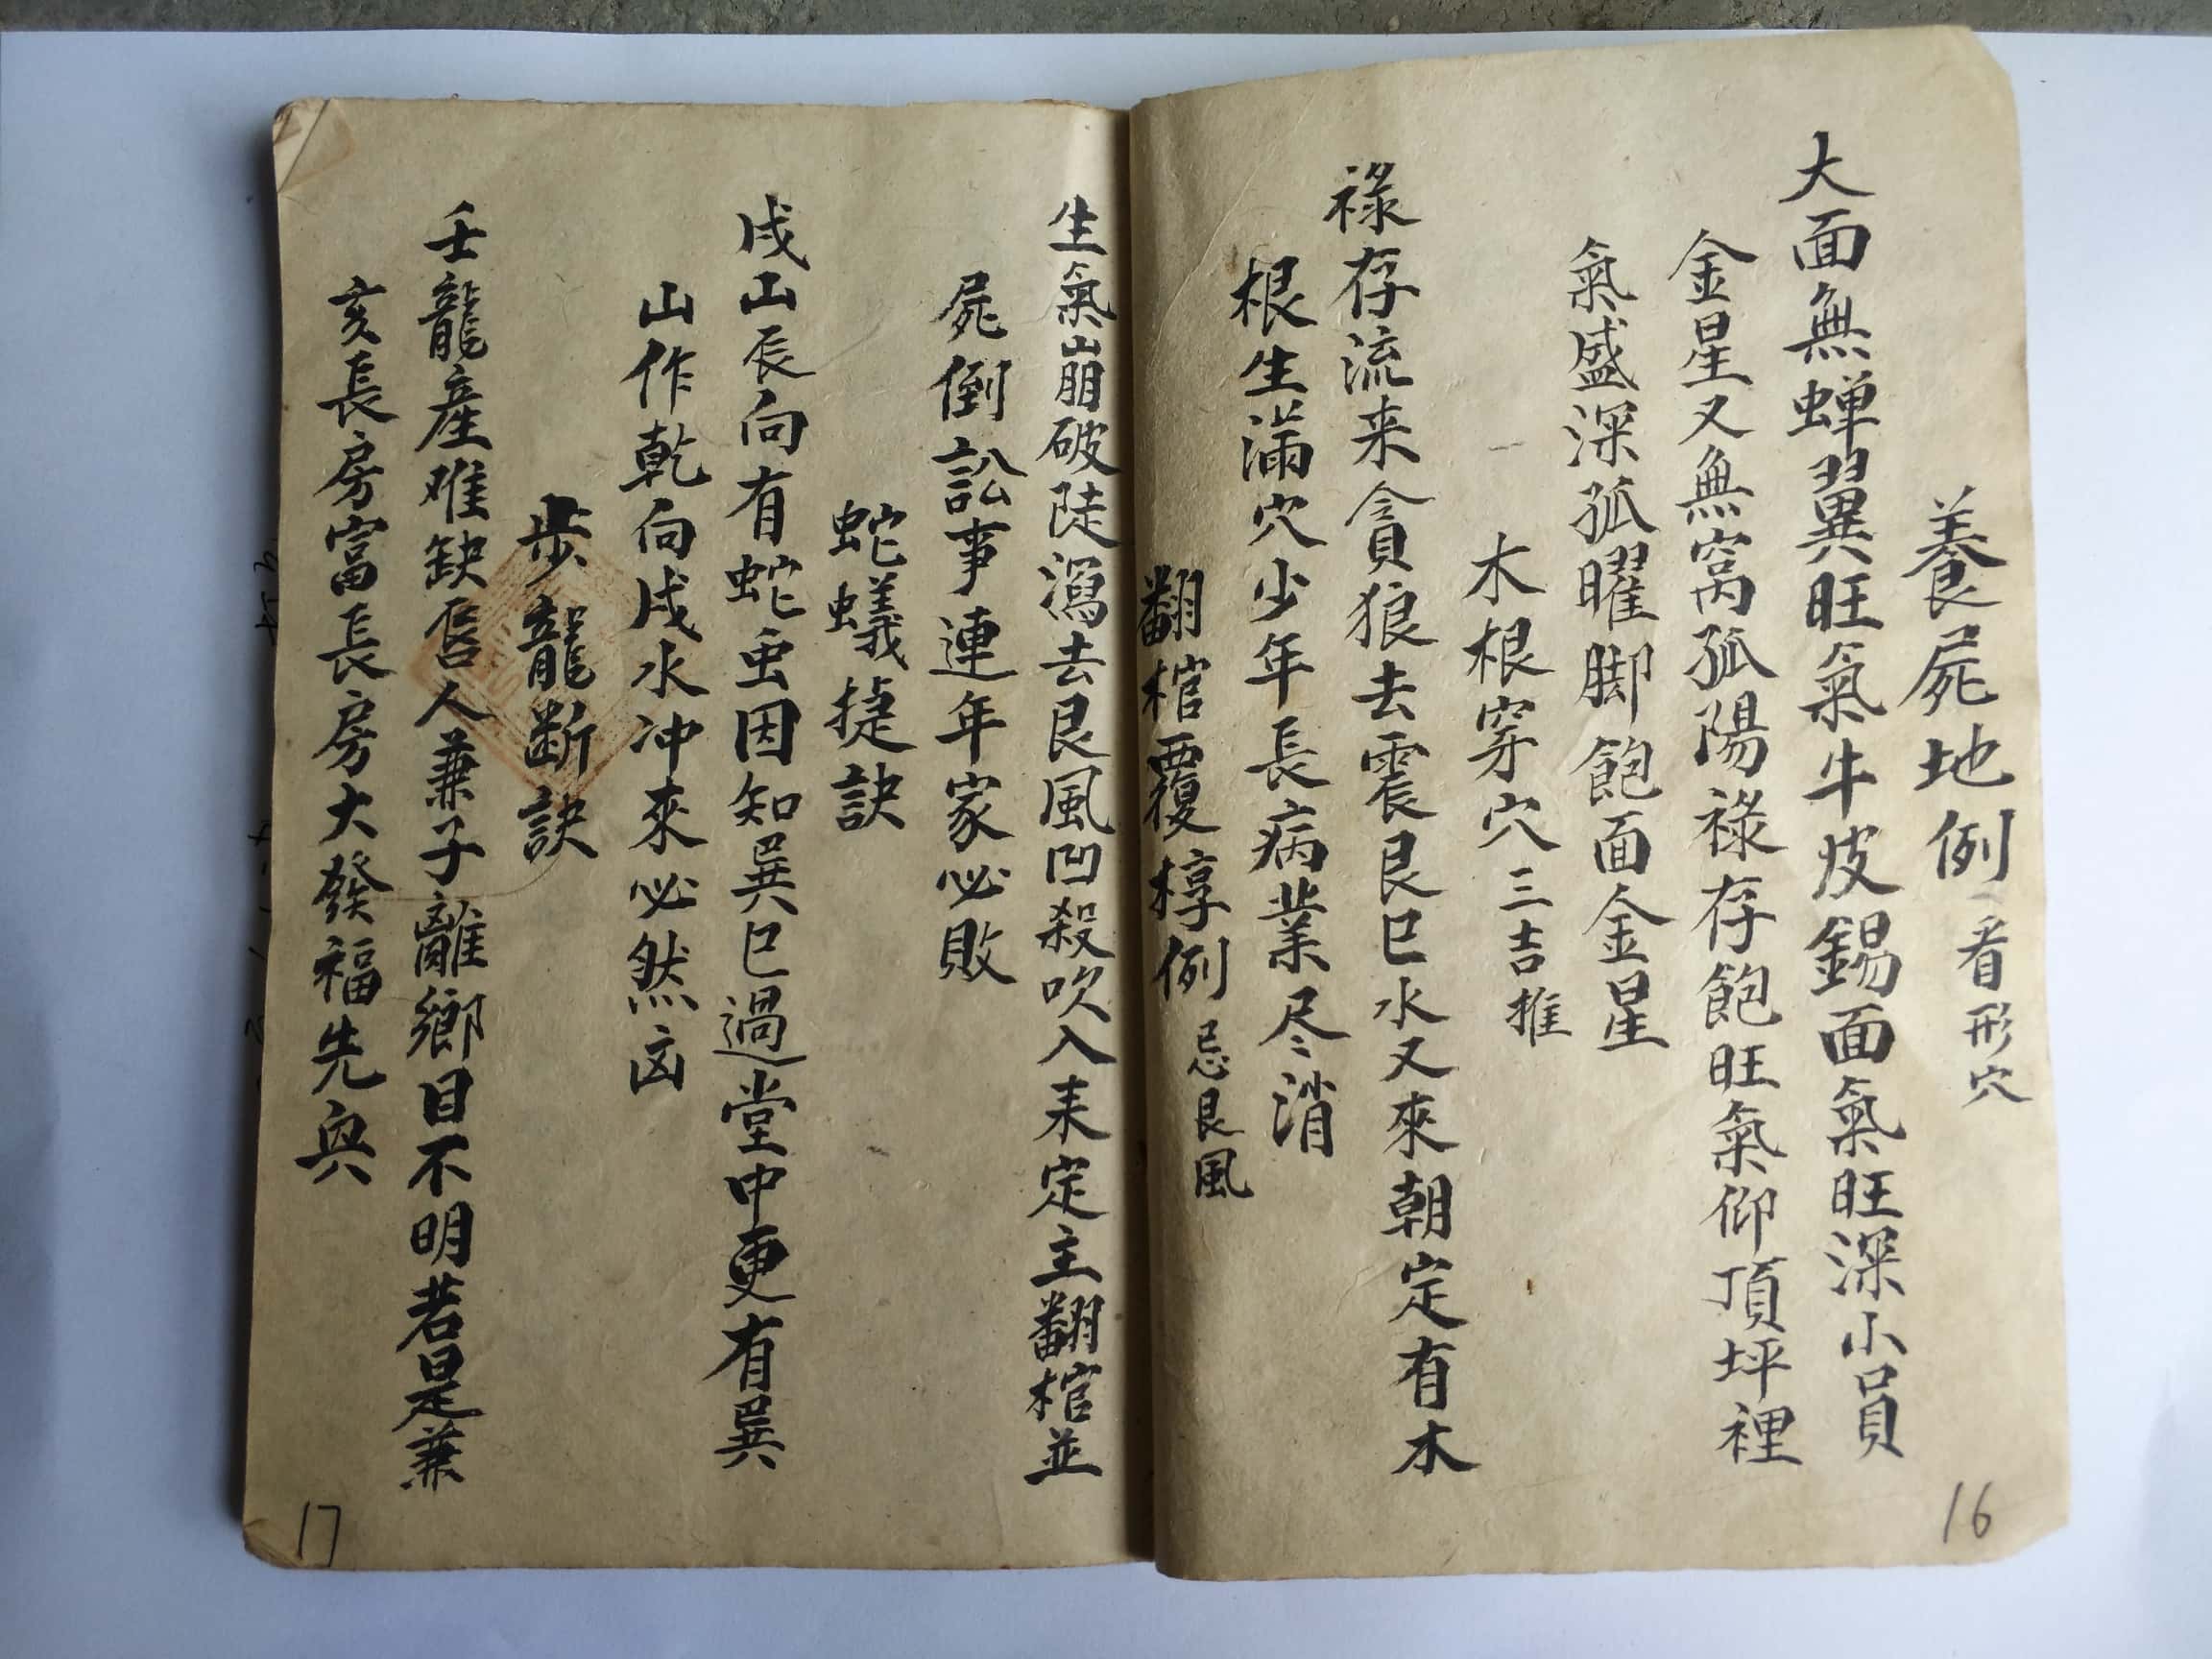 養屍地例 看形穴
大面無蝉翼旺氣牛皮錫面氣旺深小員
金星又無窩孤陽祿存飽旺氣仰頂坪裡
氣盛深孤曜脚飽面金星
木根穿穴 三吉推
祿存流来貪狼去震艮巳水又來朝定有木
根生滿穴少年長病業尽消
翻棺覆椁例 忌艮風
16
生氣崩破陡瀉去艮風凹殺吹入来定主翻棺並
屍倒訟事連年家必敗
蛇蟻捷訣
戌山辰向有蛇虫因知巽巳過堂中更有巽
山作乾向戌水冲來必然凶
步龍断訣
壬龍産难缺唇人兼子離鄉目不明若是兼
亥長房富長房大發福先興
17